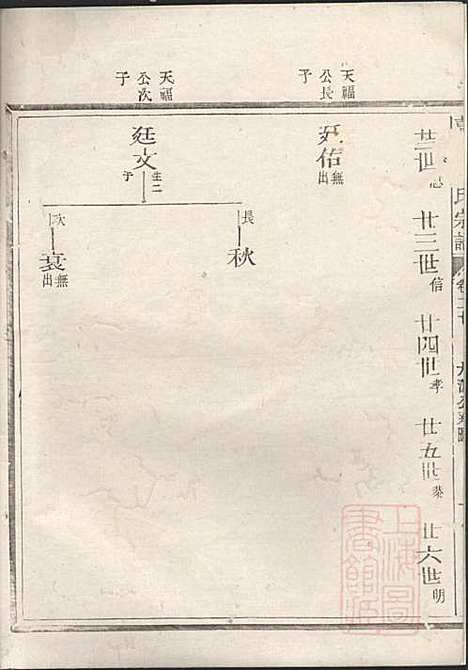 氏宗譜
廿二世忠
廿三世信
廿四世孝
廿五世
廿六世明
天福公長子
廷佑無出
天福公次子
廷文生二子
長
秋
次
袞無出
上海圖書館藏